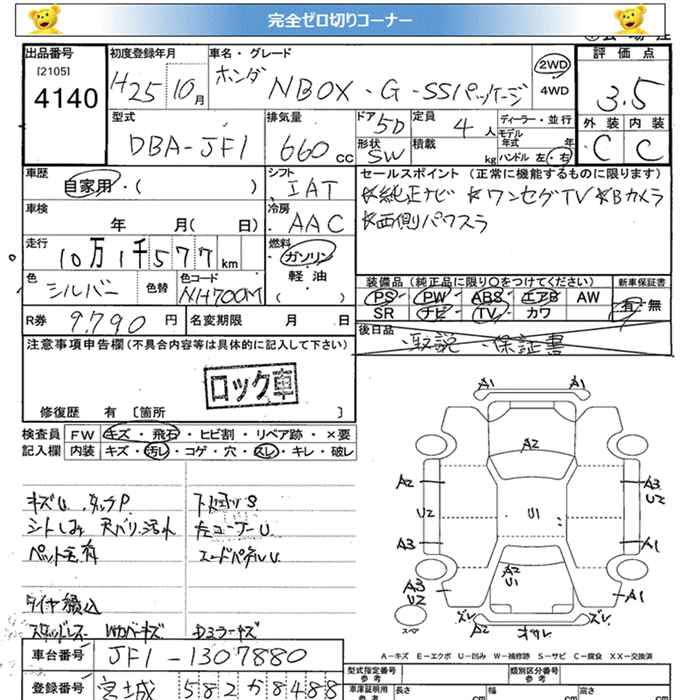 完全ゼロ切りコーナー
出品番号
[2105]
4140
初度登録年月
H25 10月
車名・グレード
ホンダ NBOX・G・SSパッケージ
2WD
4WD
評価点
3.5
外装 内装
C C
型式
DBA-JF1
排気量
660 cc
ドア 5D
形状 SW
定員 4 人
積載 kg
ディーラー・並行
モデル年式 年
ハンドル 左・右
車歴
自家用・( )
シフト
IAT
セールスポイント (正常に機能するものに限ります)
☆純正ナビ ☆ワンセグTV ☆Bカメラ
☆両側パワスラ
車検
年 月( 日)
冷房
AAC
走行
10万1千577km
燃料
ガソリン
軽油
( )
色
シルバー
色替
色コード
NH700M
装備品 (純正品に限り○をつけてください)
PS PW ABS エアB AW
SR ナビ TV カワ
新車保証書
有・無
R券 9,790 円
名変期限 月 日
後日品
・取説 ・保証書
注意事項申告欄(不具合内容等は具体的に記入して下さい)
ロック車
修復歴 有 〔箇所 〕
検査員
記入欄
FW キズ・飛石・ヒビ割・リペア跡・×要
内装 キズ・汚レ・コゲ・穴・スレ・キレ・破レ
キズU、タッチP
シートしみ 天バリ汚れ
ペット毛有
左コーナーU
タイヤ積込
スタッドレス Wカバーキズ Dミラーキズ
A1 A1
A2
A2 A3
U2
U2 U1
A3 A1
A2
U1
A3
U2
A1
ズレ ズレ
A2
スペア
A-キズ E-エクボ U-凹み W-補修跡 S-サビ C-腐食 XX-交換済
車台番号 JF1-1307880
型式指定番号
類別区分番号
参考
登録番号 宮城 582 か 8488
車庫証明用
参考
長さ cm
幅 cm
高さ cm